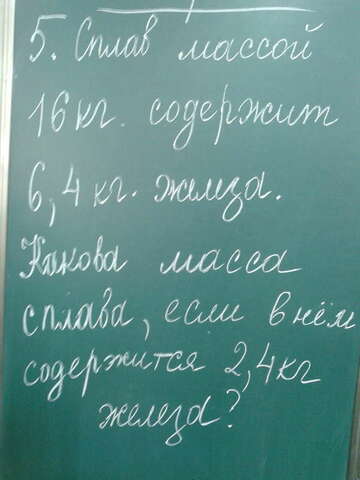 5. Сплав массой
16 кг. содержит
6,4 кг. железа.
Какова масса
сплава, если в нём
содержится 2,4 кг
железа?